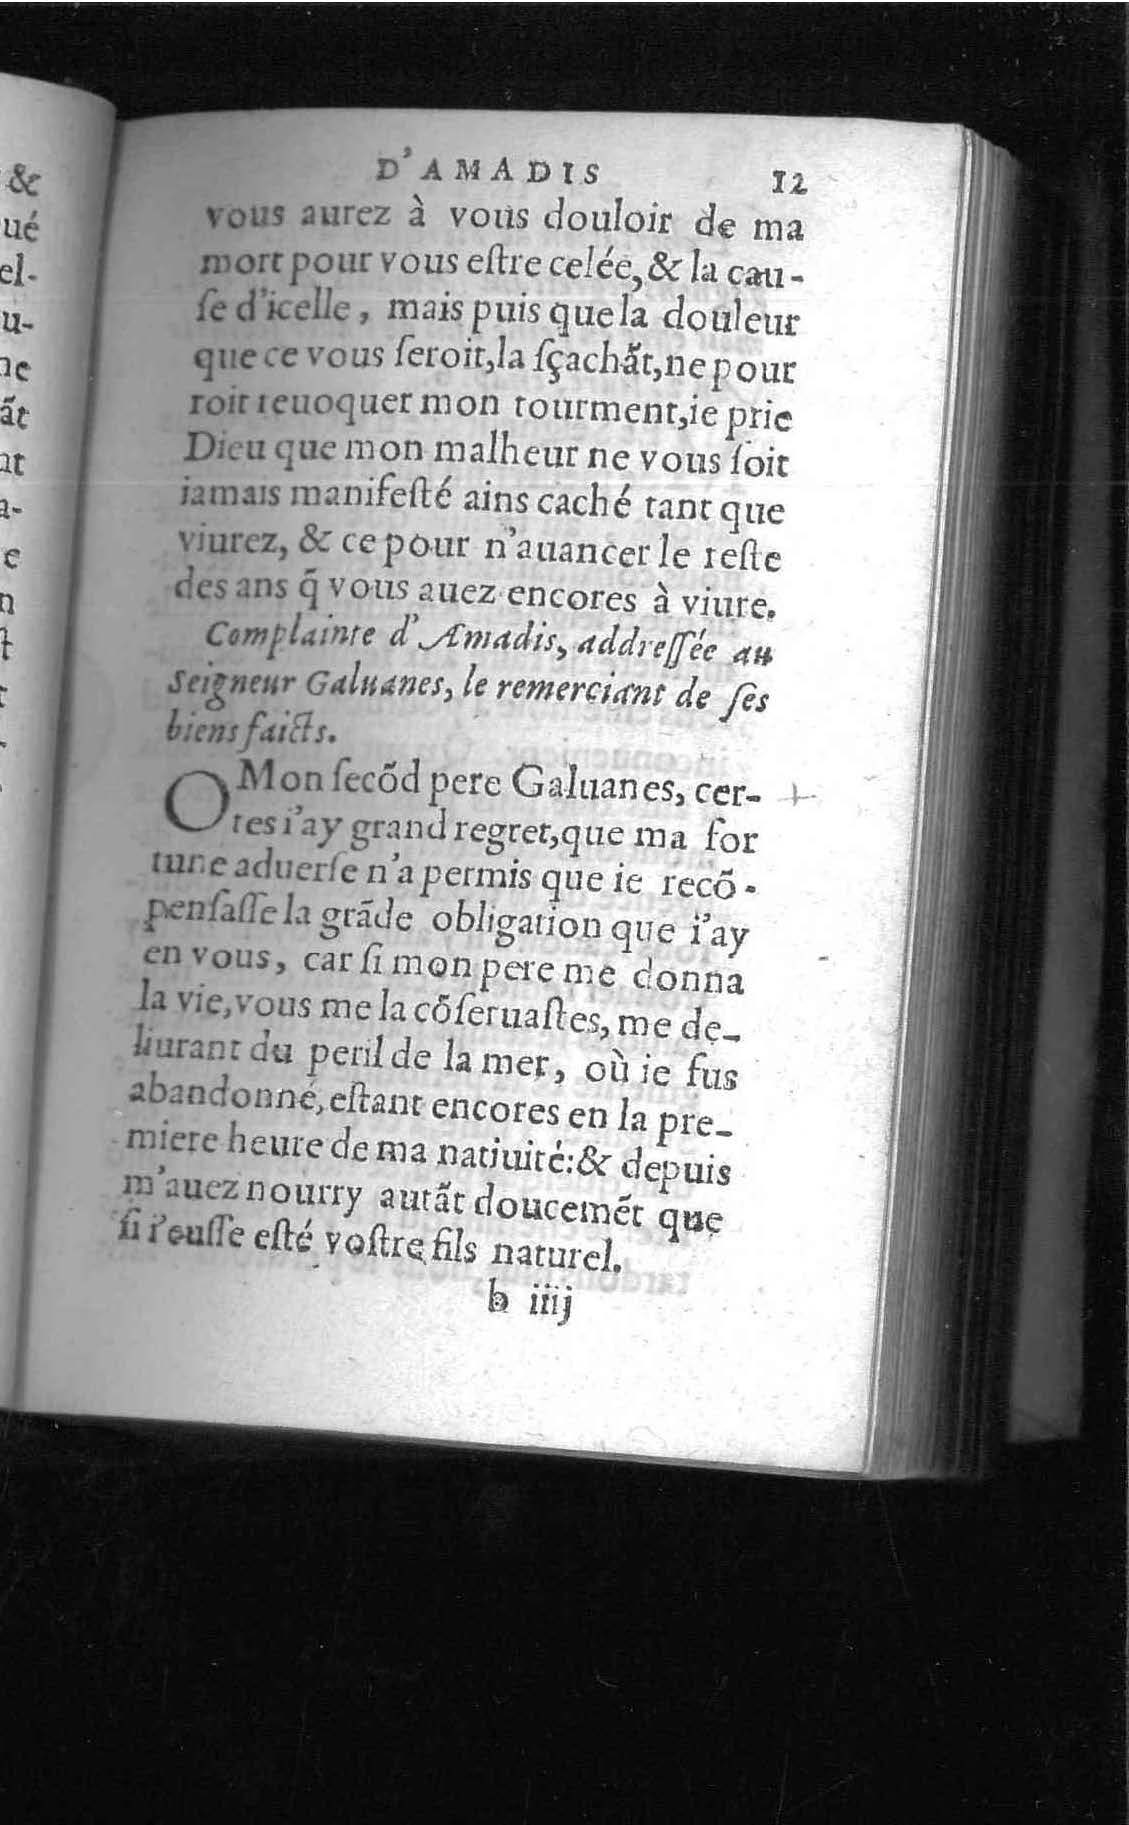 D'AMADIS 12
vous aurez à vous douloir de ma
mort pour vous eſtre celée, & la cau-
ſe d'icelle, mais puis que la douleur
que ce vous ſeroit, la ſçachãt, ne pour
roit reuoquer mon tourment, ie prie
Dieu que mon malheur ne vous ſoit
iamais manifeſté ains caché tant que
viurez, & ce pour n'auancer le reſte
des ans q̃ vous auez encores à viure.
Complainte d'Amadis, addreſſée au
Seigneur Galuanes, le remerciant de ſes
biens faicts.
O Mon ſecõd pere Galuanes, cer-
tes i'ay grand regret, que ma for
tune aduerſe n'a permis que ie recõ-
penſaſſe la grãde obligation que i'ay
en vous, car ſi mon pere me donna
la vie, vous me la cõſeruaſtes, me de-
liurant du peril de la mer, où ie fus
abandonné, eſtant encores en la pre-
miere heure de ma natiuité: & depuis
m'auez nourry autãt doucemẽt que
ſi i'euſſe eſté voſtre fils naturel.
b iiij
&
ué
el-
u-
ne
ãt
nt
a-
e
n
ſt